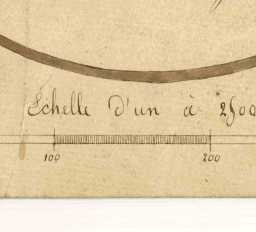 Echelle d'un à 2500
100 200